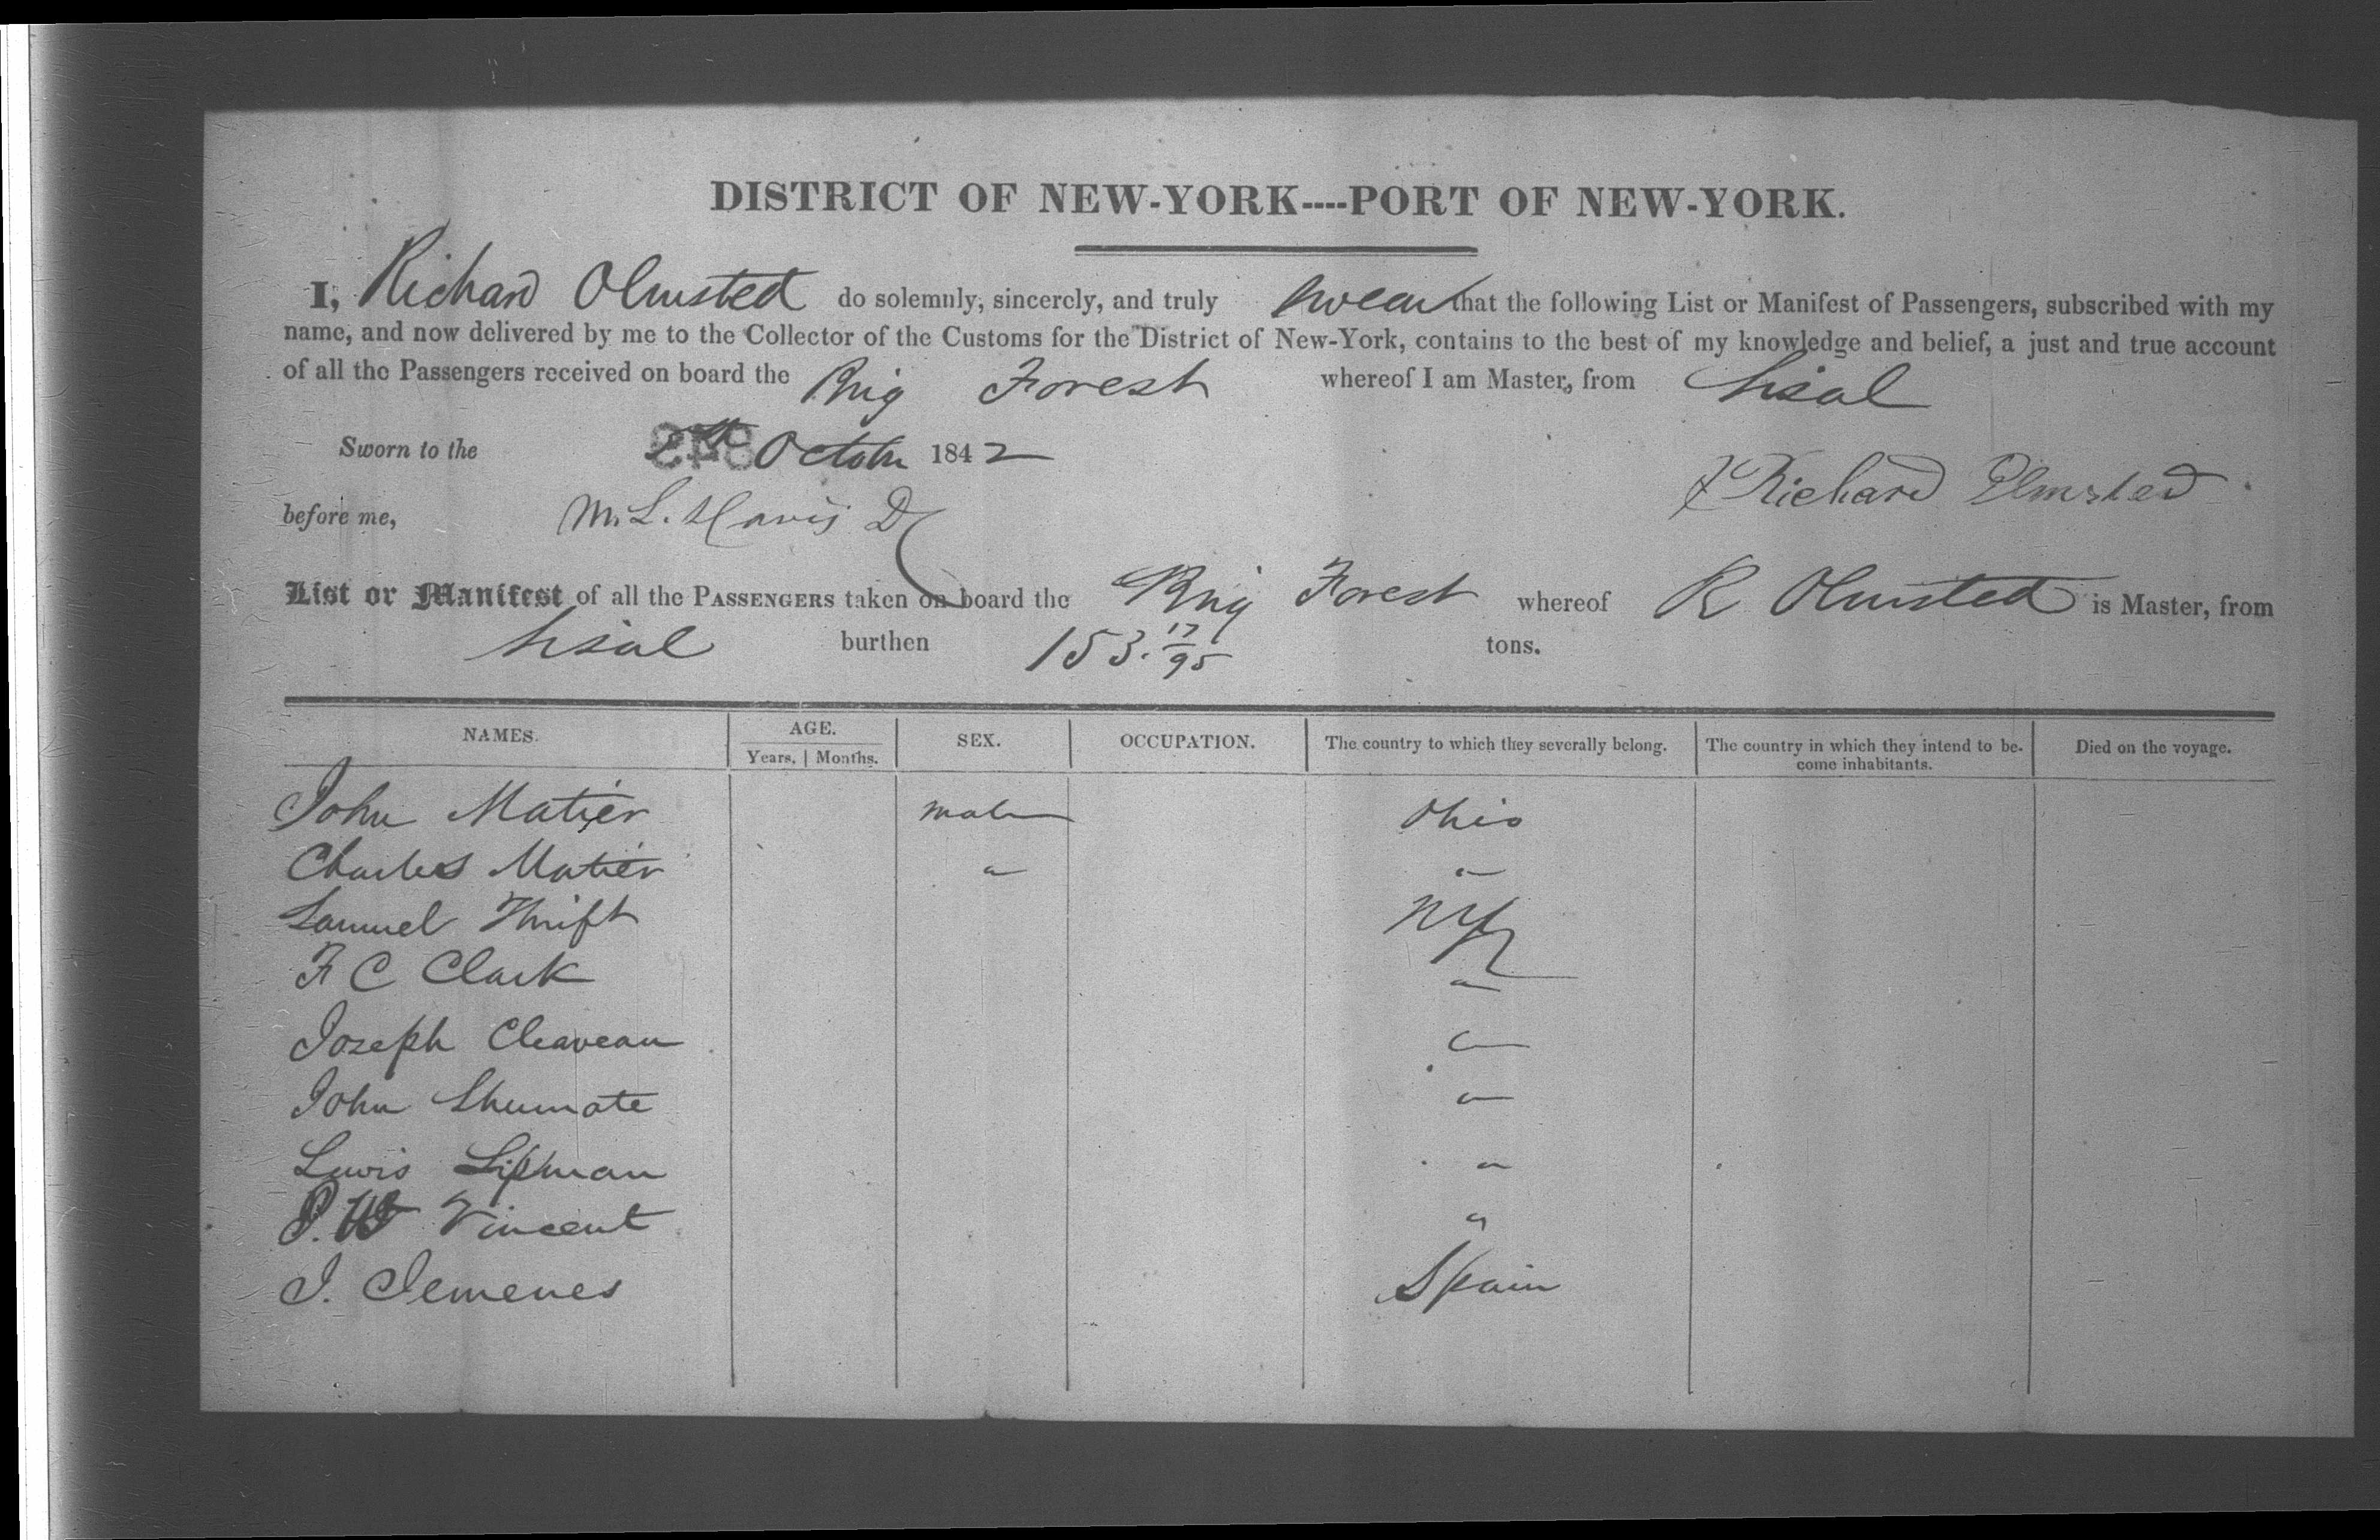 DISTRICT OF NEW-YORK----PORT OF NEW-YORK.
I, Richard Olmsted do solemnly, sincerely, and truly swear that the following List or Manifest of Passengers, subscribed with my
name, and now delivered by me to the Collector of the Customs for the District of New-York, contains to the best of my knowledge and belief, a just and true account
of all the Passengers received on board the Brig Forest whereof I am Master, from Sisal
Sworn to the Octobr 1842
Richard Olmsted
before me, M. L. Davis D
List or Manifest of all the PASSENGERS taken on board the Brig Forest whereof R Olmsted is Master, from
Sisal burthen 153. 17/95 tons.
NAMES. AGE. SEX. OCCUPATION. The country to which they severally belong. The country in which they intend to be- Died on the voyage.
Years. | Months. come inhabitants.
John Matier male Ohio
Charles Matier " "
Samuel Thrift NY
F C Clark "
Joseph Cleaveau "
John Shumate "
Lewis Lipman "
P. W Vincent "
J. Jemenes Spain